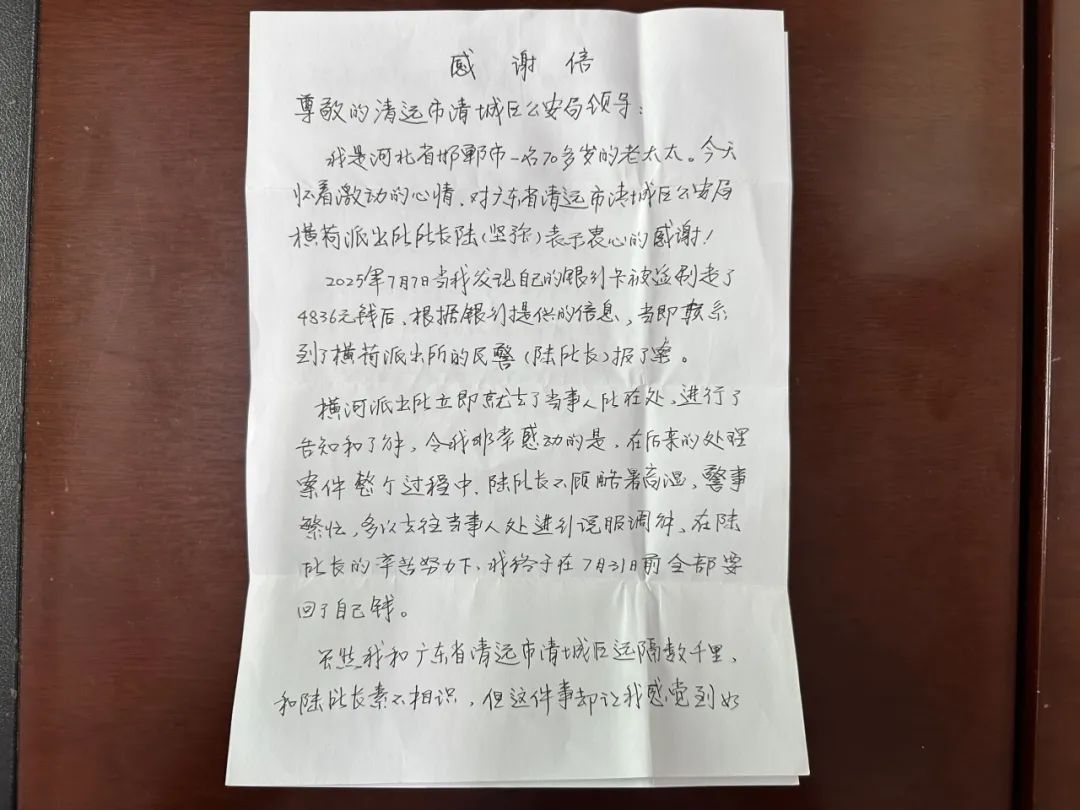 感谢信
尊敬的清远市清城区公安局领导：
我是河北省邯郸市一名70多岁的老太太。今天
怀着激动的心情，对广东省清远市清城区公安局
横荷派出所所长陆(坚弥)表示衷心的感谢！
2025年7月7日当我发现自己的银行卡被盗刷走了
4836元钱后，根据银行提供的信息，当即联系
到了横荷派出所的民警(陆所长)报了案。
横河派出所立即就去了当事人所在处，进行了
告知和了解，令我非常感动的是，在后来的处理
案件整个过程中，陆所长不顾酷暑高温，警事
繁忙，多次去往当事人处进行说服调解，在陆
所长的辛苦努力下，我终于在7月31日前全部要
回了自己钱。
虽然我和广东省清远市清城区远隔数千里，
和陆所长素不相识，但这件事却让我感觉到如